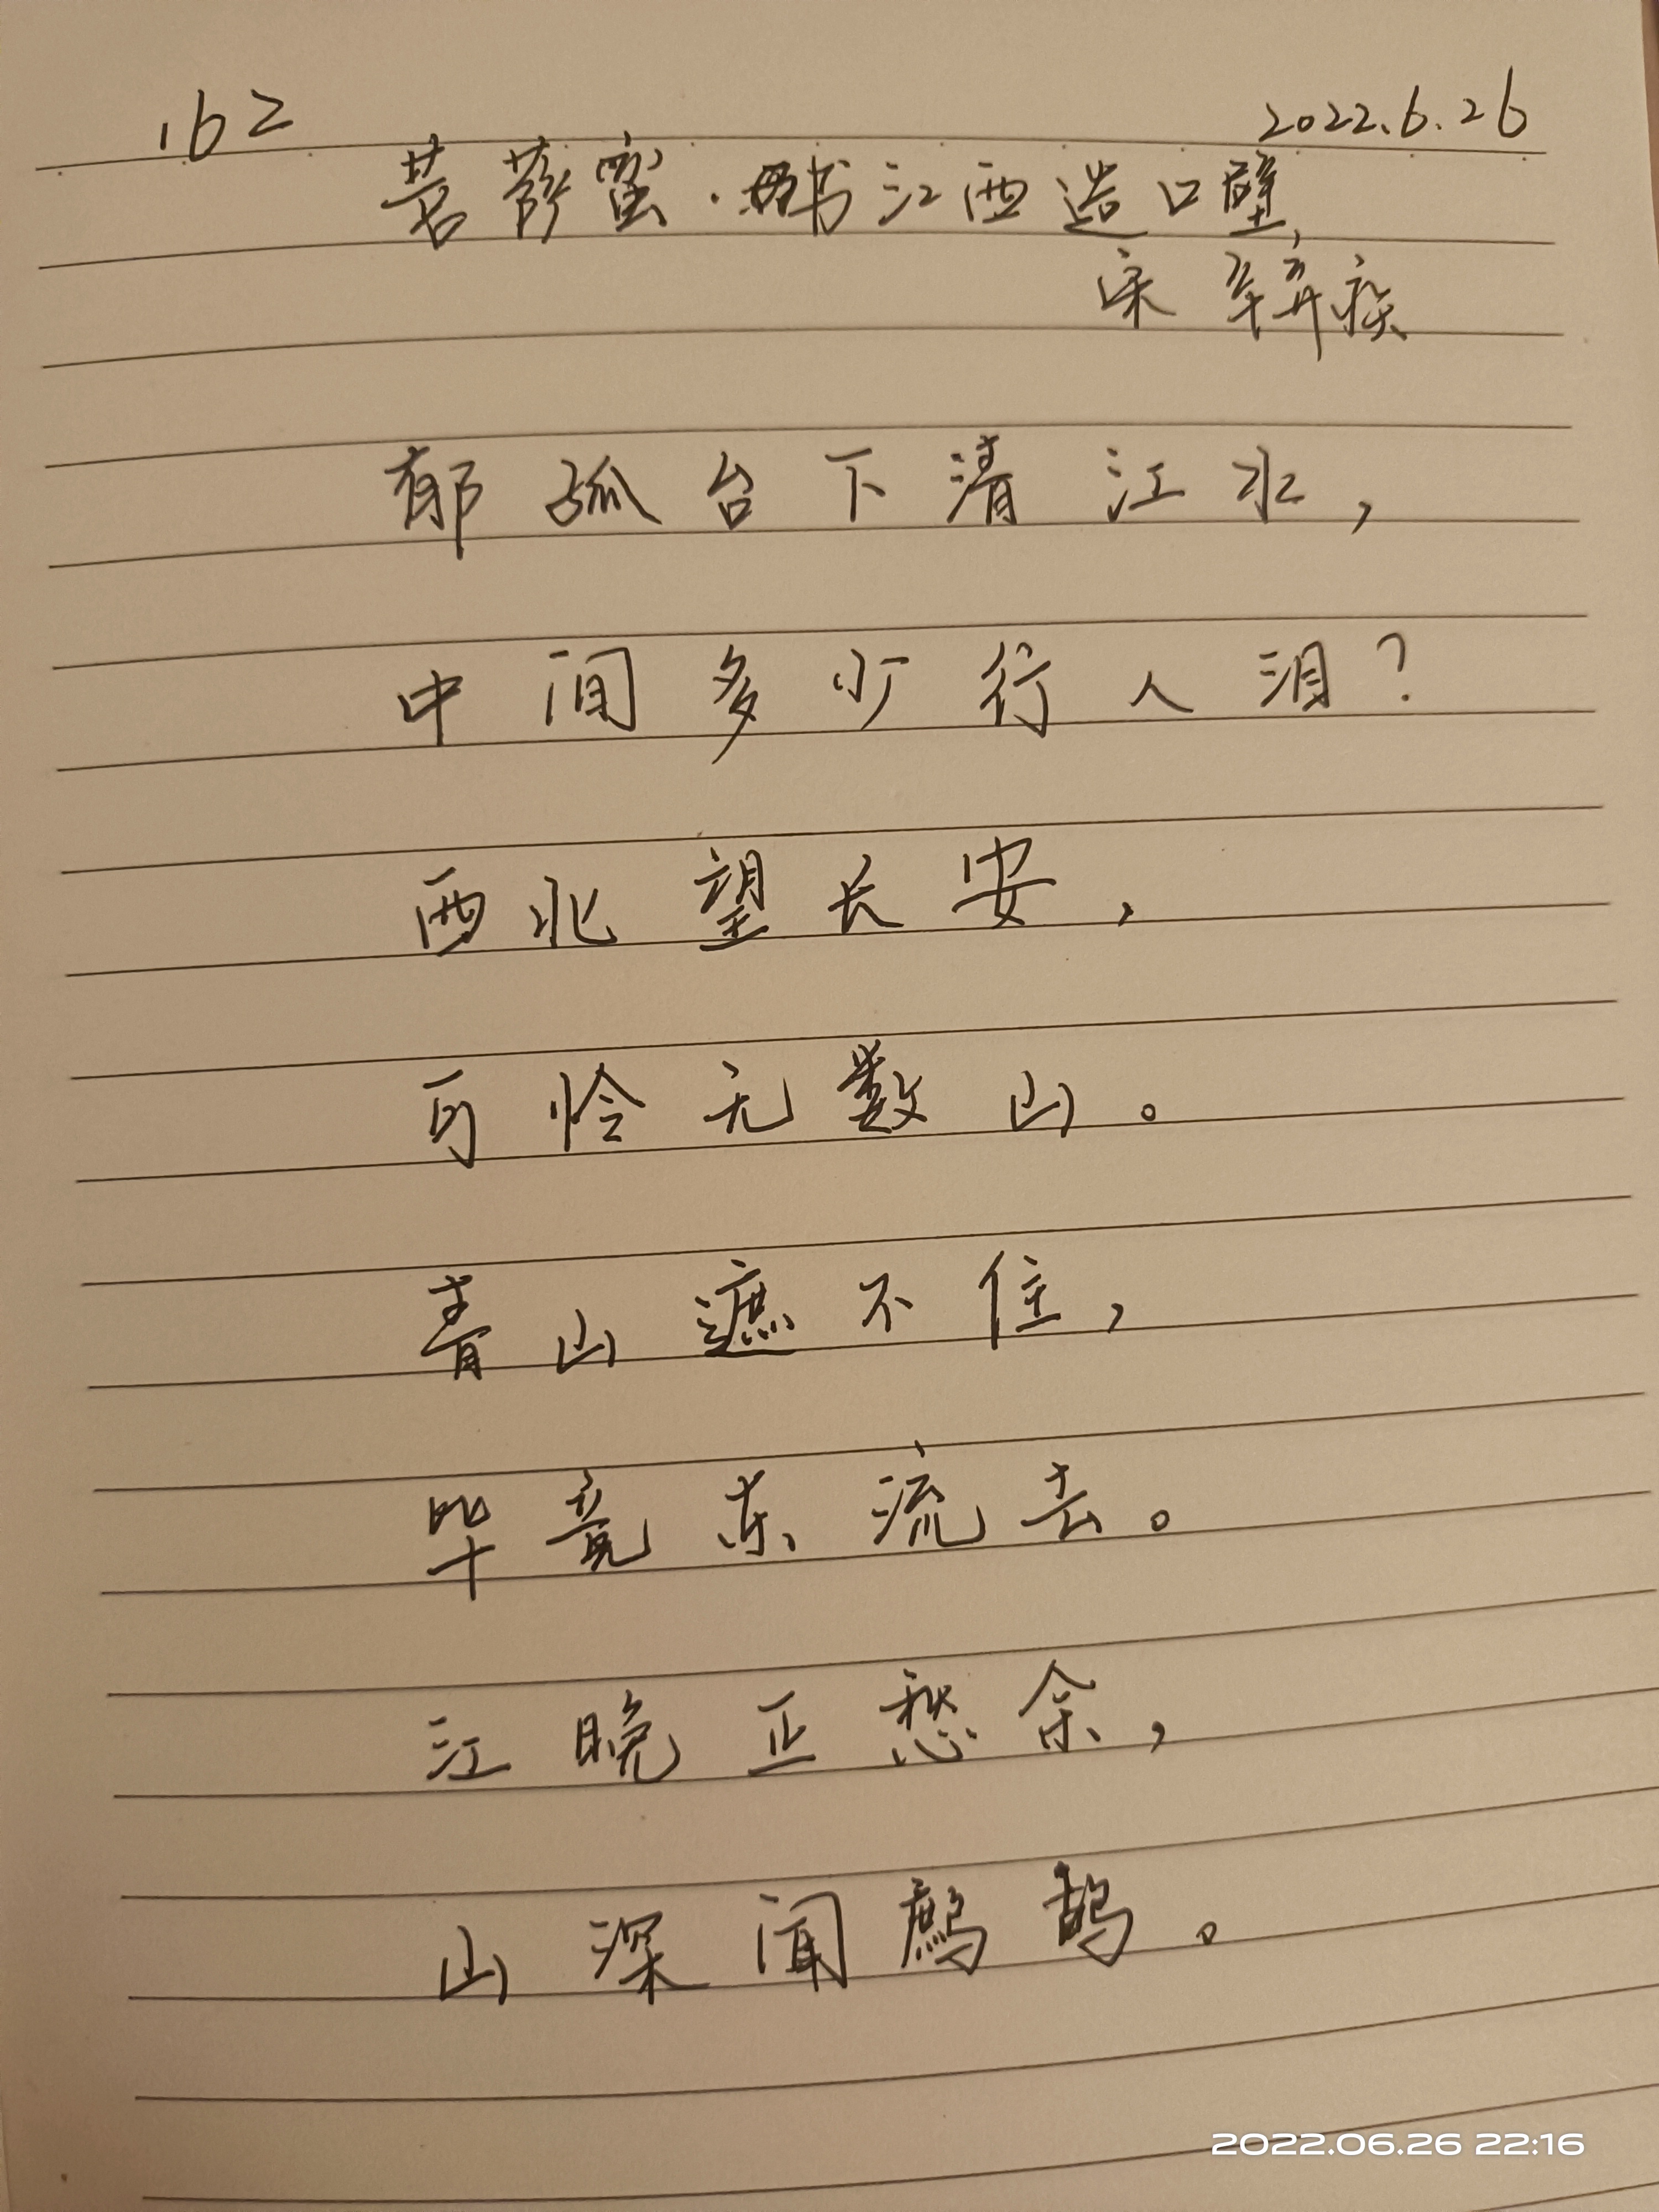 162
2022.6.26
菩萨蛮·书江西造口壁
宋 辛弃疾
郁孤台下清江水,
中间多少行人泪?
西北望长安,
可怜无数山。
青山遮不住,
毕竟东流去。
江晚正愁余,
山深闻鹧鸪。
2022.06.26 22:16